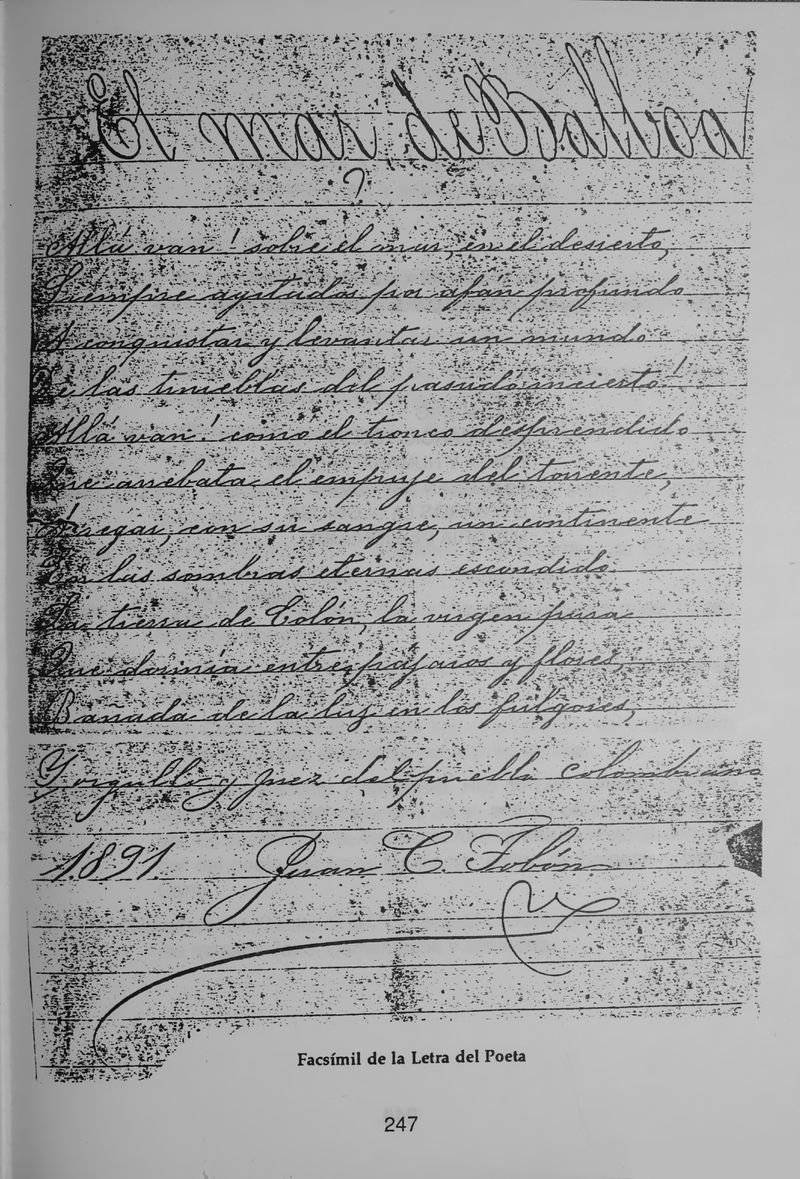 El mar de Balboa
?
Allá van! sobre el mar, en el desierto,
Siempre agitados por afán profundo
A conquistar y levantar un mundo
De las tinieblas del pasado incierto!
Allá van! como el tronco desprendido
Que arrebata el empuje del torrente,
A regar, con su sangre, un continente
Con las sombras eternas escondido
La tierra de Colón, la virgen pura
Que dormía entre pájaros y flores,
Bañada de la luz en los fulgores,
Y orgullo y prez del pueblo colombiano
1891. Juan C. Tobón
Facsímil de la Letra del Poeta
247